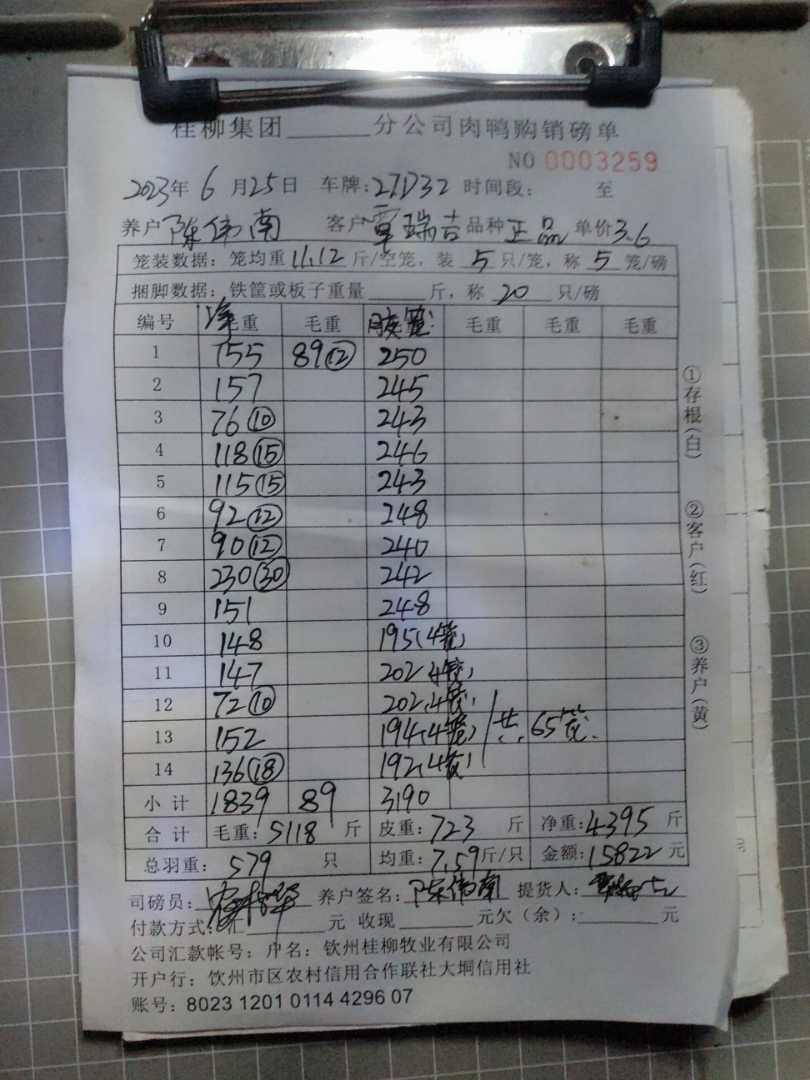 桂柳集团______分公司肉鸭购销磅单
NO 0003259
2023年 6 月25日 车牌:27D32 时间段: 至
养户 陈伟南 客户 覃瑞吉 品种 正品 单价3.6
笼装数据: 笼均重11.12斤/空笼, 装 5 只/笼, 称 5 笼/磅
捆脚数据: 铁筐或板子重量______斤, 称 20 只/磅
编号 净毛重 毛重 胶笼 毛重 毛重 毛重
1 155 89⑫ 250
2 157 245
3 76⑩ 243
4 118⑮ 246
5 115⑮ 243
6 92⑫ 248
7 90⑫ 240
8 230㉚ 242
9 151 248
10 148 195(4笼)
11 147 202(4笼)
12 72⑩ 202(4笼)
13 152 194(4笼) 共65笼
14 136⑱ 192(4笼)
小计 1839 89 3190
合计 毛重:5118 斤 皮重:723 斤 净重:4395 斤
总羽重: 579 只 均重:7.59斤/只 金额:15822元
司磅员: 养户签名:陈伟南 提货人:
付款方式:汇______元 收现______元欠(余):______元
公司汇款帐号: 户名: 钦州桂柳牧业有限公司
开户行: 钦州市区农村信用合作联社大垌信用社
账号: 8023 1201 0114 4296 07
①存根(白)
②客户(红)
③养户(黄)